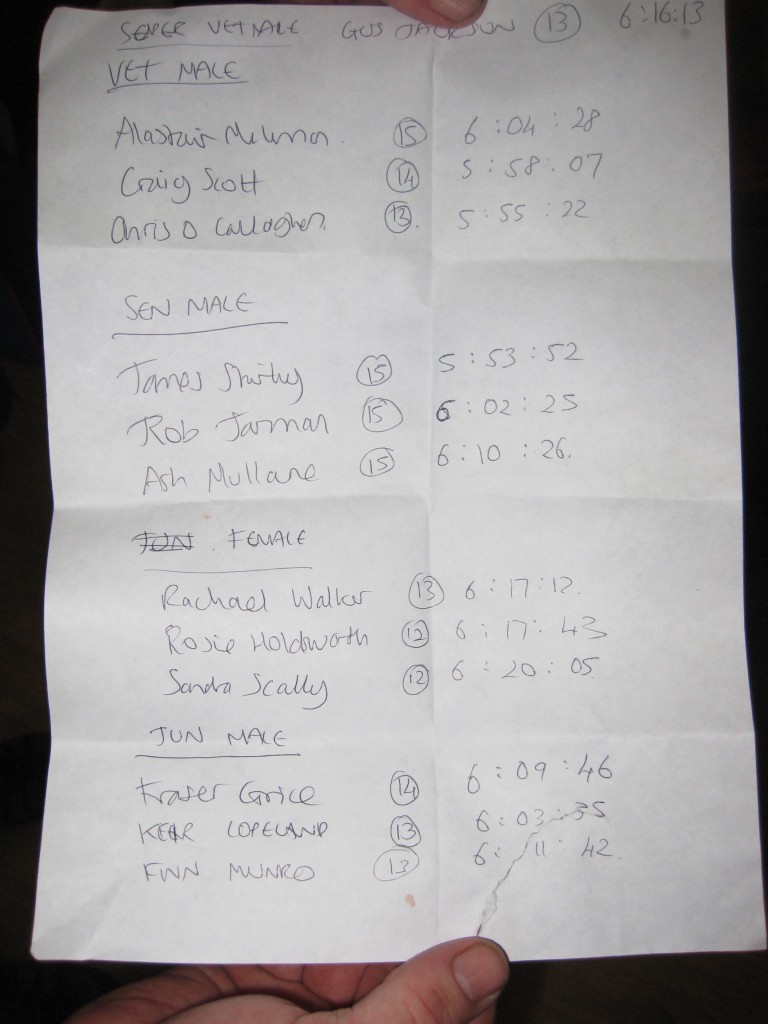 SUPER VET MALE GUS JACKSON 13 6:16:13
VET MALE
Alastair McLennon 15 6:04:28
Craig Scott 14 5:58:07
Chris O Callaghen. 13. 5:55:22
SEN MALE
James Shirley 15 5:53:52
Rob Jarman 15 6:02:25
Ash Mullane 15 6:10:26.
JUN. FEMALE
Rachael Walker 13 6:17:12.
Rosie Holdsworth 12 6:17:43
Sandra Scally 12 6:20:05
JUN MALE
Fraser Grice 14 6:09:46
KERR COPELAND 13 6:03:35
FINN MUNRO 13 6:11:42.